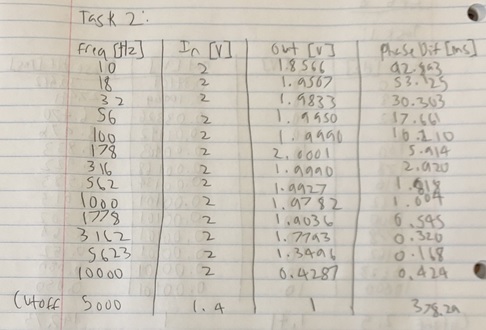 Task 2:
Freq [Hz] In [V] Out [V] Phase Dif [ms]
10 2 1.8566
18 2 1.9567 53.125
32 2 1.9833 30.303
56 2 1.9950 17.661
100 2 1.9990 10.110
178 2 2.0001 5.914
316 2 1.9990 2.920
562 2 1.9927
1000 2 1.9782 1.004
1778 2 1.9036 0.545
3162 2 1.7793 0.320
5623 2 1.3496 0.168
10000 2 0.4287 0.424
Cutoff 5000 1.4 1